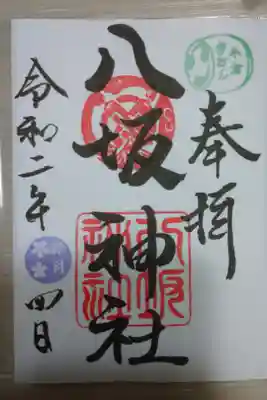 奉拝
八坂神社
八坂神社
令和二年
四日